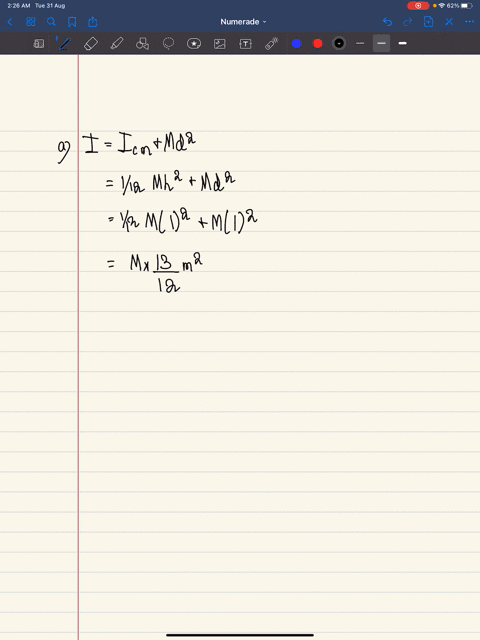 2:26 AM Tue 31 Aug 62%
Numerade
a) I = I cm + Md²
= 1/12 Mh² + Md²
= 1/12 M(1)² + M(1)²
= M x 13/12 m²